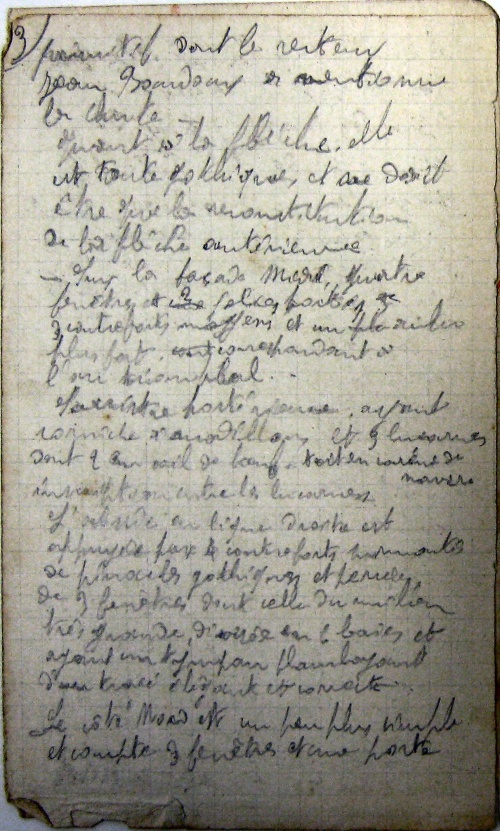 3
primitif dont le recteur
Jean Bourdoux mentionne
la chute
Quant à la flèche, elle
est toute gothique, et ne doit
être que la reconstitution
de la flèche antérieure.
— Sur la façade Midi, quatre
fenêtres et portes
3 contreforts moyens et un
plus fort, correspondant à
l'arc triomphal. -
Sacristie postérieure, ayant
corniche à modillons et 3 lucarnes
dont 2 en œil de bœuf. toit en carène de
navire
inscription entre les lucarnes
L'abside en ligne droite est
appuyée par 4 contreforts surmontés
de pinacles gothiques et percée
de 3 fenêtres dont celle du milieu
très grande, divisée en 6 baies et
ayant un tympan flamboyant
d'un tracé élégant et correct.
Le côté Nord est un peu plus simple
et compte 3 fenêtres et une porte